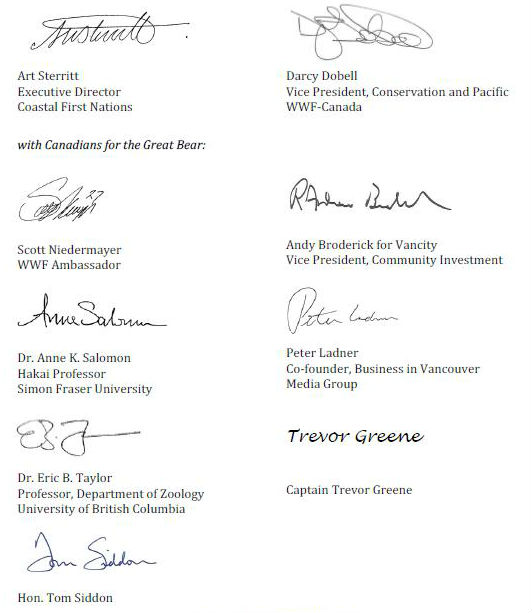 Art Sterritt
Executive Director
Coastal First Nations
Darcy Dobell
Vice President, Conservation and Pacific
WWF-Canada
with Canadians for the Great Bear:
Scott Niedermayer
WWF Ambassador
R Andrew
Andy Broderick for Vancity
Vice President, Community Investment
Anne Salomon
Dr. Anne K. Salomon
Hakai Professor
Simon Fraser University
Peter Ladner
Peter Ladner
Co-founder, Business in Vancouver
Media Group
Dr. Eric B. Taylor
Professor, Department of Zoology
University of British Columbia
Trevor Greene
Captain Trevor Greene
Tom Siddon
Hon. Tom Siddon